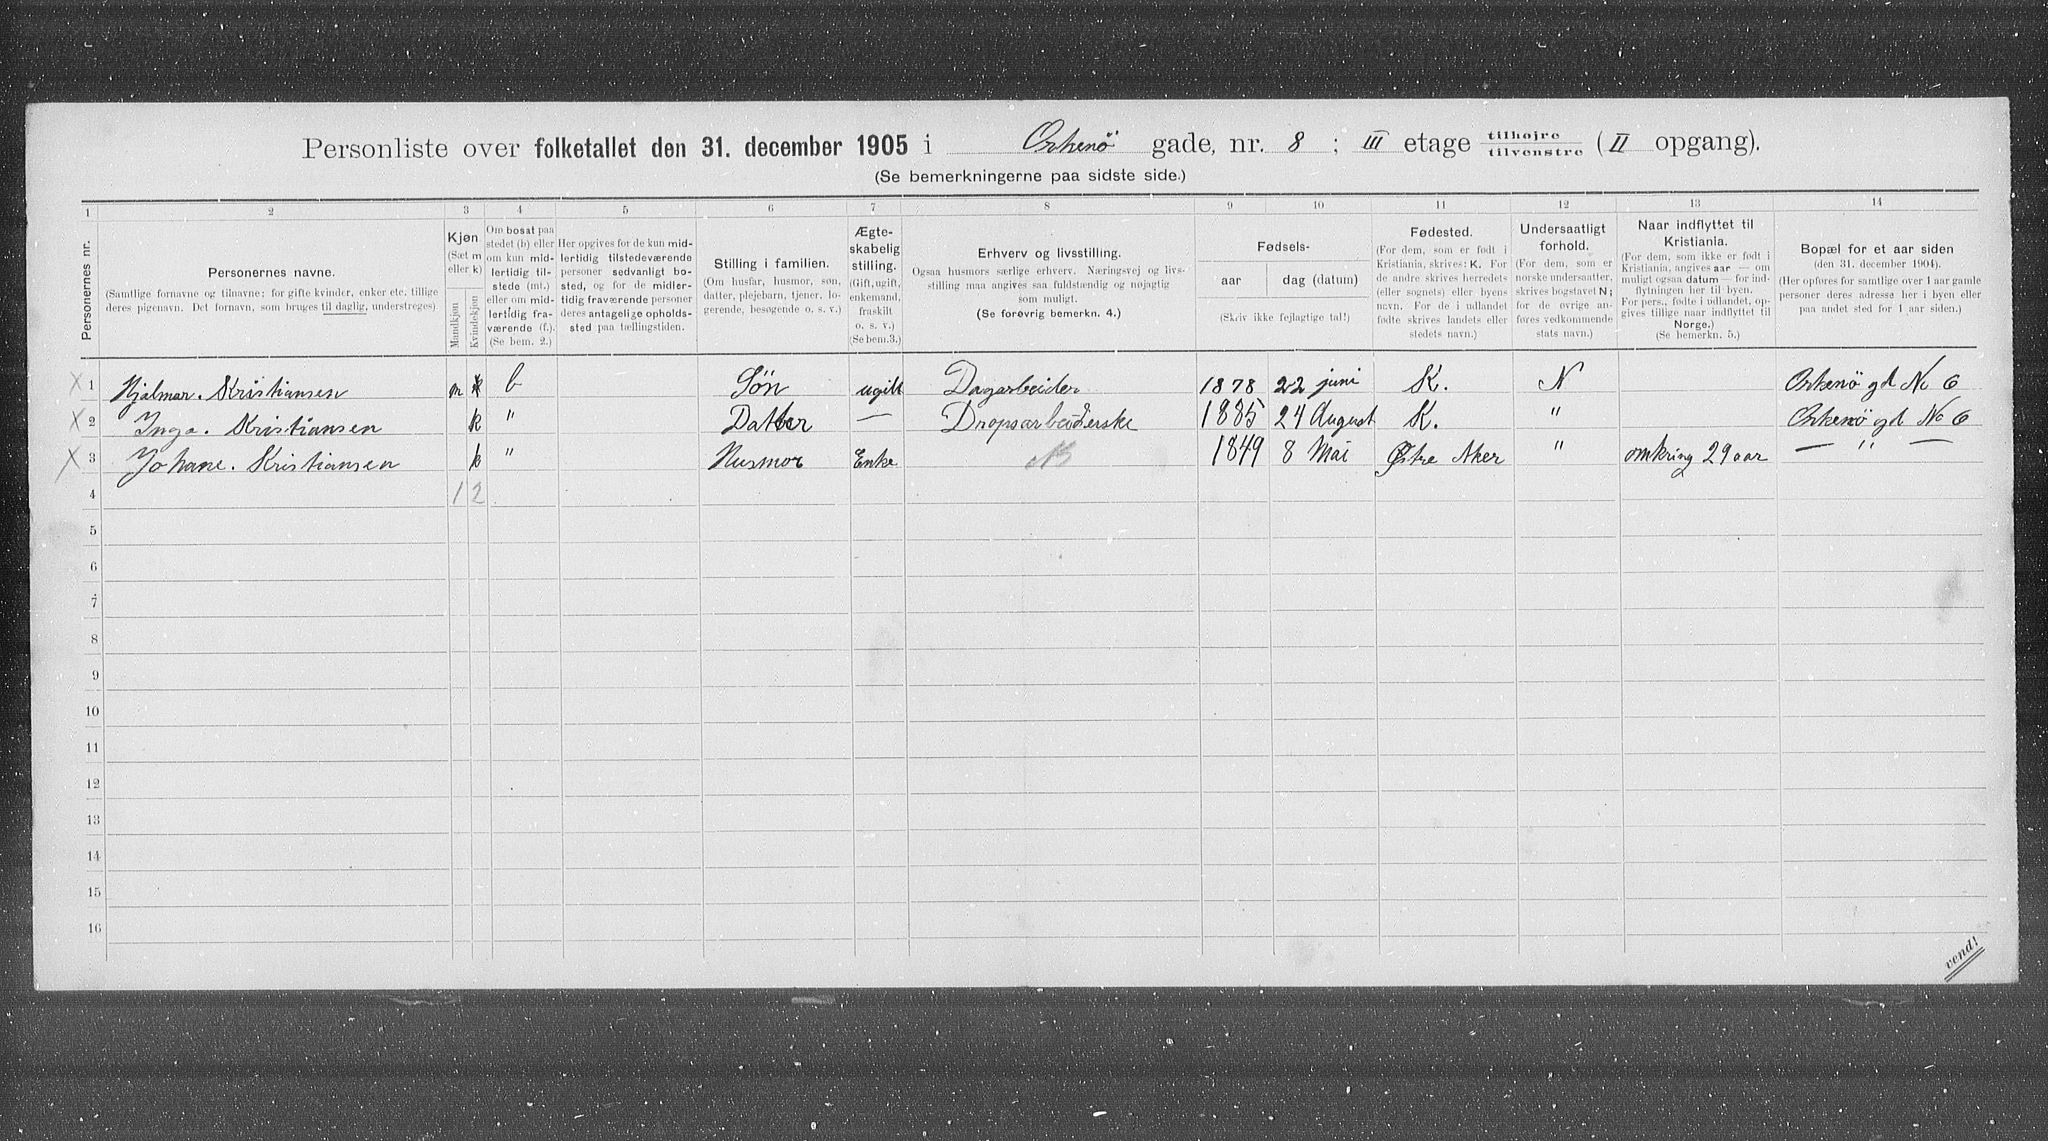 Personliste over folketallet den 31. december 1905 i Orkenö gade, nr. 8 ; III etage tilhøjre / tilvenstre (II opgang).
(Se bemerkningerne paa sidste side.)
1 2 3 4 5 6 7 8 9 10 11 12 13 14
Personernes nr.
Personernes navne.
(Samtlige fornavne og tilnavne; for gifte kvinder, enker etc. tillige
deres pigenavn. Det fornavn, som bruges til daglig, understreges).
Kjøn
(Sæt m
eller k)
Mandkjøn
Kvindekjøn
Om bosat paa
stedet (b) eller
om kun mid-
lertidig til-
stede (mt.)
eller om mid-
lertidig fra-
værende (f.).
(Se bem. 2.)
Her opgives for de kun mid-
lertidig tilstedeværende
personer sedvanligt bo-
sted, og for de midler-
tidig fraværende personer
deres antagelige opholds-
sted paa tællingstiden.
Stilling i familien.
(Om husfar, husmor, søn,
datter, plejebarn, tjener, lo-
gerende, besøgende o. s. v.)
Ægte-
skabelig
stilling.
(Gift, ugift,
enkemand,
fraskilt
o. s. v.)
(Se bem.3.)
Erhverv og livsstilling.
Ogsaa husmors særlige erhverv. Næringsvej og livs-
stilling maa angives saa fuldstændig og nøjagtig
som muligt.
(Se forøvrig bemerkn. 4.)
Fødsels-
aar
dag (datum)
(Skriv ikke fejlagtige tal!)
Fødested.
(For dem, som er født i
Kristiania, skrives: K. For
de andre skrives herredets
(eller sognets) eller byens
navn. For de i udlandet
fødte skrives landets eller
stedets navn.)
Undersaatligt
forhold.
(For dem, som er
norske undersaatter,
skrives bogstavet N;
for de øvrige an-
føres vedkommende
stats navn.)
Naar indflyttet til
Kristiania.
(For dem, som ikke er født i
Kristiania, angives aar — om
muligt ogsaa datum — for ind-
flytningen her til byen.
For pers., fødte i udlandet, op-
gives tillige naar indflyttet til
Norge.)
(Se bemerkn. 5.)
Bopæl for et aar siden
(den 31. december 1904).
(Her opføres for samtlige over 1 aar gamle
personer deres adresse her i byen eller
paa andet sted for 1 aar siden.)
X 1 Hjalmar. Kristiansen m b Søn ugift Dagarbeider 1878 22 juni K. N Orkenö gd No 6
X 2 Inga. Kristiansen k " Datter — Dropsarbeiderske 1885 24 August K. " Orkenö gd No 6
X 3 Johane. Kristiansen k " Husmor Enke 1849 8 Mai Østre Aker " omkring 29 aar — " —
4 1 2
5
6
7
8
9
10
11
12
13
14
15
16
vend!